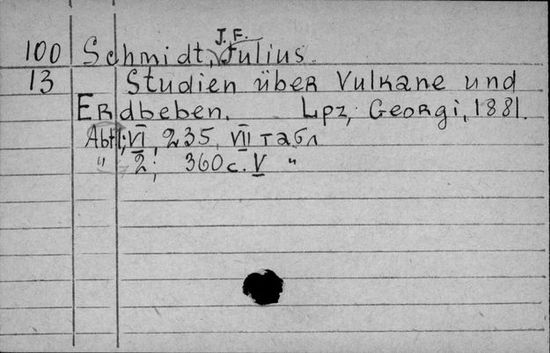 J.F.
100 Schmidt, Julius.
13 Studien über Vulkane und
Erdbeben. Lpz, Georgi, 1881.
Abt 1; VI, 235, VII табл
" 2; 360 с. V "